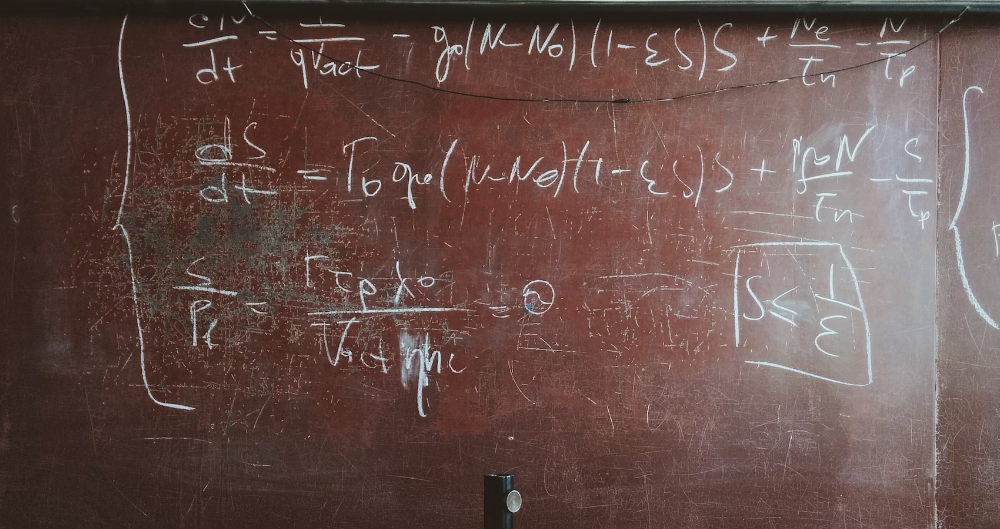 dN/dt = I/qVact - g₀(N-N₀)(1-εS)S + Ne/τn - N/τp
dS/dt = Γ₀g₀(N-N₀)(1-εS)S + N/τn - S/τp
S/Pf = Γτpλ₀/Vactηhc =
S ≤ 1/ε